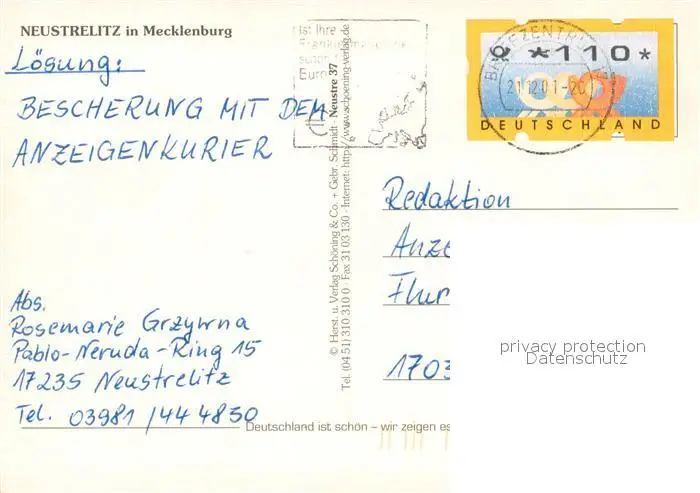 NEUSTRELITZ in Mecklenburg
Lösung:
BESCHERUNG MIT DEM
ANZEIGENKURIER
Abs.
Rosemarie Grzywna
Pablo-Neruda-Ring 15
17235 Neustrelitz
Tel. 03981/444850
Ist Ihre
Euro
© Herst. u. Verlag Schöning & Co. + Gebr. Schmidt · Neustre 37
Tel. (04 51) 310 310 0 · Fax 31 03 130 · Internet: http://www.schoening-verlag.de
Deutschland ist schön – wir zeigen es
*110*
BRIEFZENTRUM
21.12.01-20
DEUTSCHLAND
Redaktion
Anze
Flur
1703
privacy protection
Datenschutz